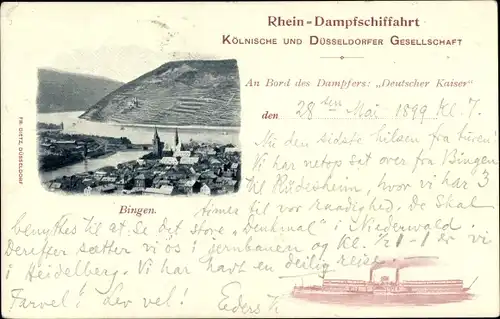 Rhein-Dampfschiffahrt
Kölnische und Düsseldorfer Gesellschaft
An Bord des Dampfers: „Deutscher Kaiser"
den 28 den Mai 1899 Kl. 7.
Nu den sidste hilsen fra turen.
Vi har netop sat over fra Bingen
til Rüdesheim, hvor vi har 3
timer til vor raadighed. De skal
benyttes til at se det store „Denkmal" i Niederwald.
Derefter sætter vi os i jernbanen og Kl. ½ 1-1 er vi
i Heidelberg. Vi har havt en deilig reise
Farvel! lev vel! Eders
Bingen.
FR. DIETZ, DÜSSELDORF